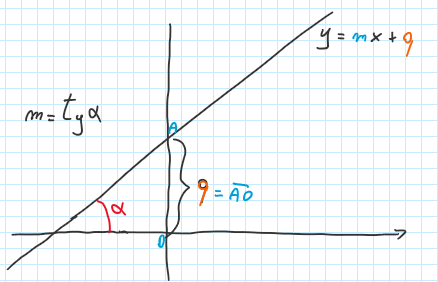 y = mx + q
m = tgα
A
α
q = A̅O̅
O